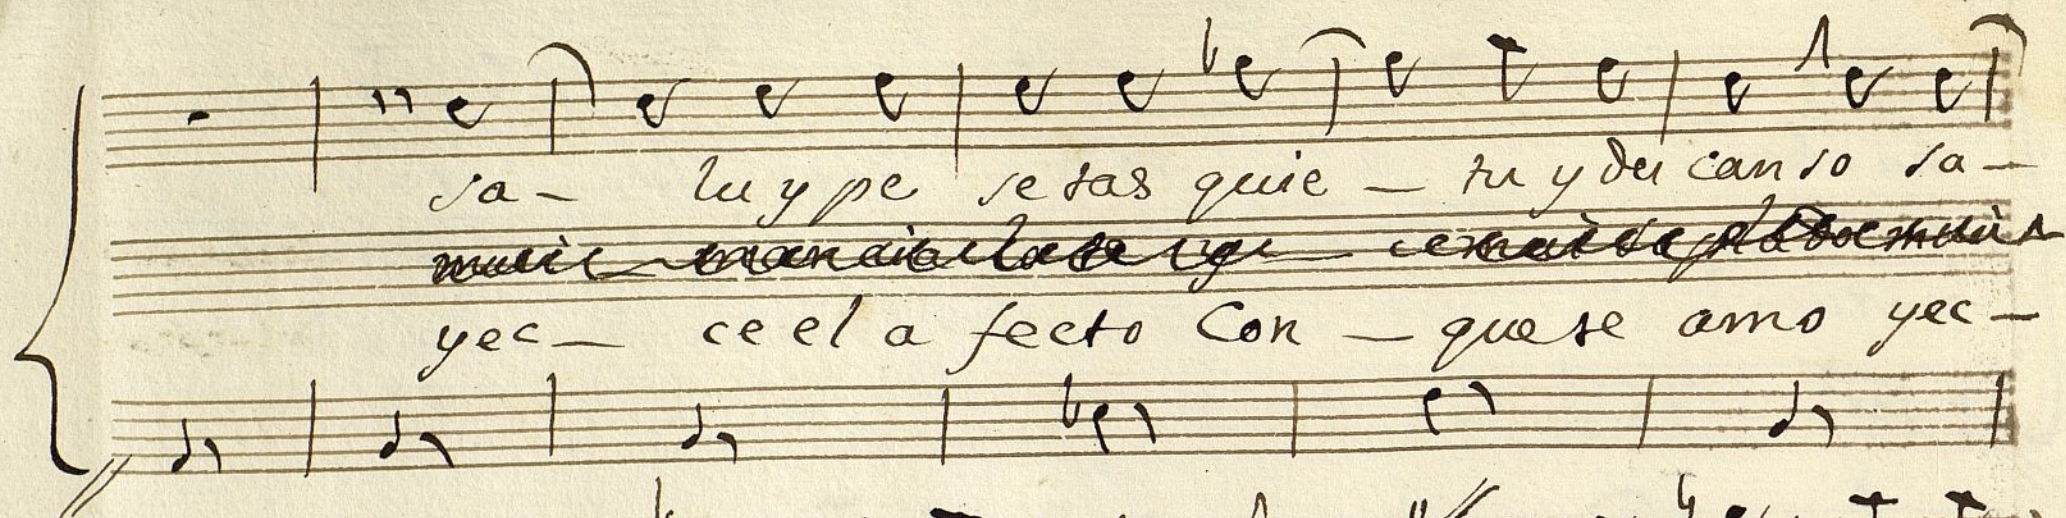 sa – lu y pe setas quie – tu y des canso sa –
yec – ce el a fecto Con – que se amo yec –